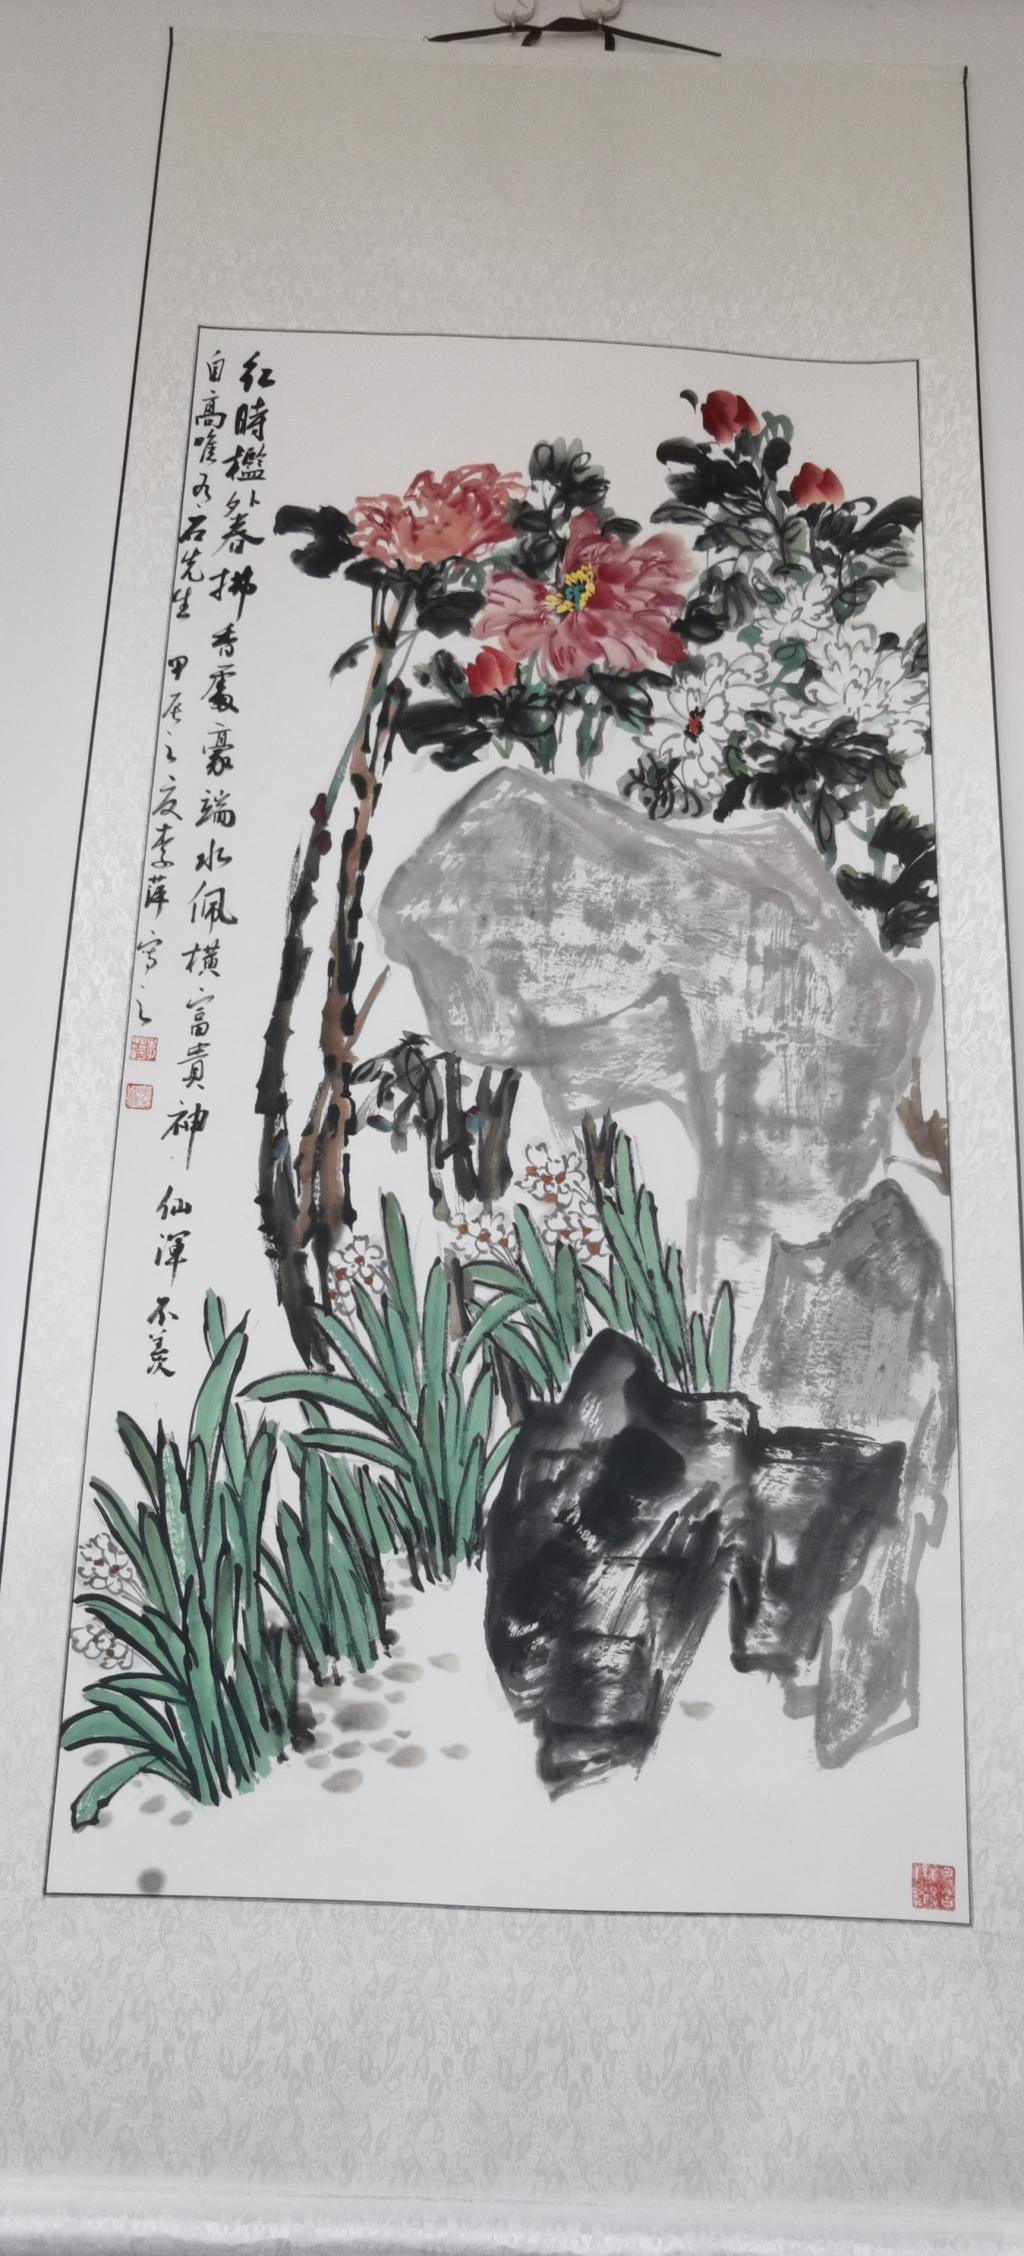 红時檻外春拂香處豪端水佩横富貴神仙渾不羡
自高唯有石先生 甲辰之夏李萍寫之